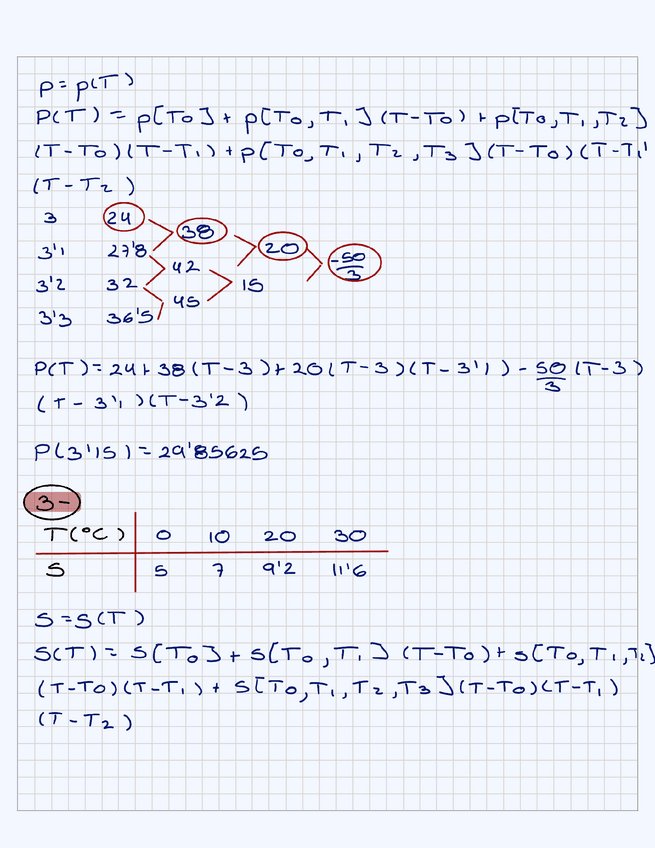 P = P(T)
P(T) = P[T0] + P[T0, T1](T-T0) + P[T0, T1, T2]
(T-T0)(T-T1) + P[T0, T1, T2, T3](T-T0)(T-T1)
(T-T2)
3 24 38 20 -50/3
3'1 27'8 42 15
3'2 32 45
3'3 36'5
P(T) = 24 + 38(T-3) + 20(T-3)(T-3'1) - 50/3 (T-3)
(T-3'1)(T-3'2)
P(3'15) = 29'85625
3-
T(ºC) 0 10 20 30
S 5 7 9'2 11'6
S = S(T)
S(T) = S[T0] + S[T0, T1] (T-T0) + S[T0, T1, T2]
(T-T0)(T-T1) + S[T0, T1, T2, T3](T-T0)(T-T1)
(T-T2)